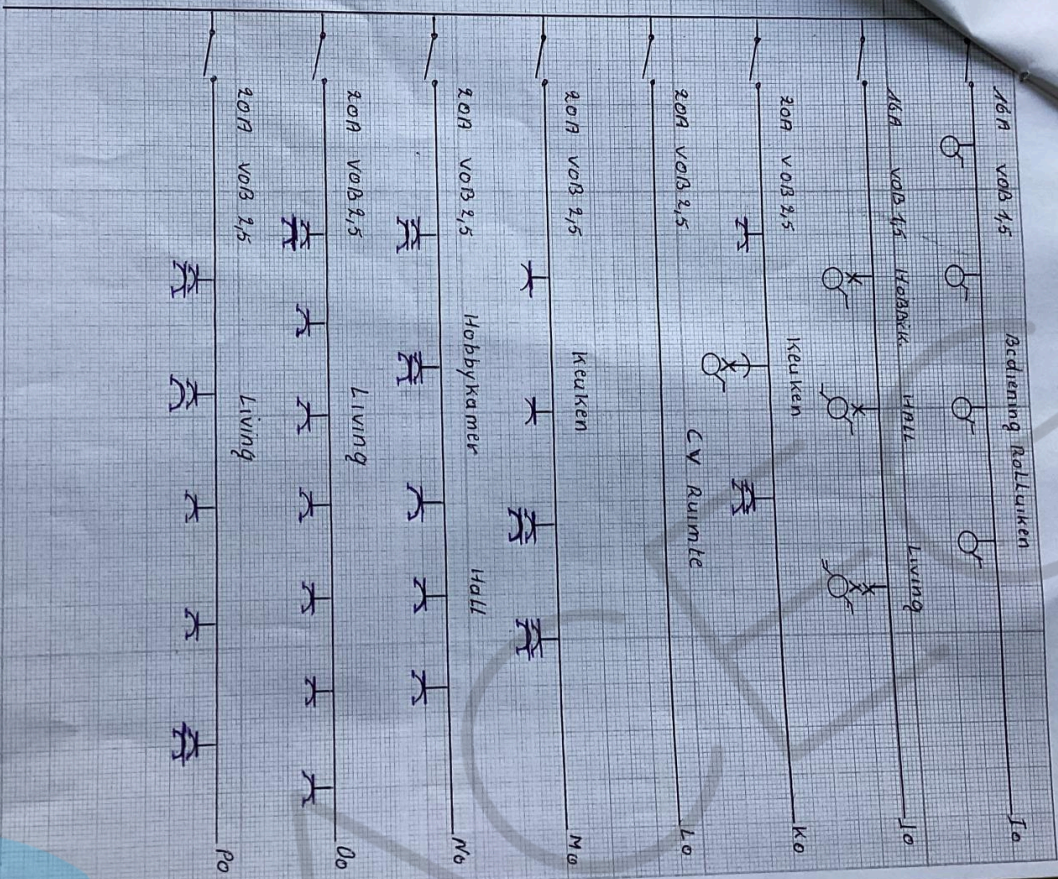 16A VOB 1,5 Bediening Rolluiken Io
16A VOB 1,5 HALL Living Jo
20A VOB 2,5 Keuken Ko
20A VOB 2,5 CV Ruimte Lo
20A VOB 2,5 Keuken Mo
20A VOB 2,5 Hobbykamer Hall No
20A VOB 2,5 Living Oo
20A VOB 2,5 Living Po